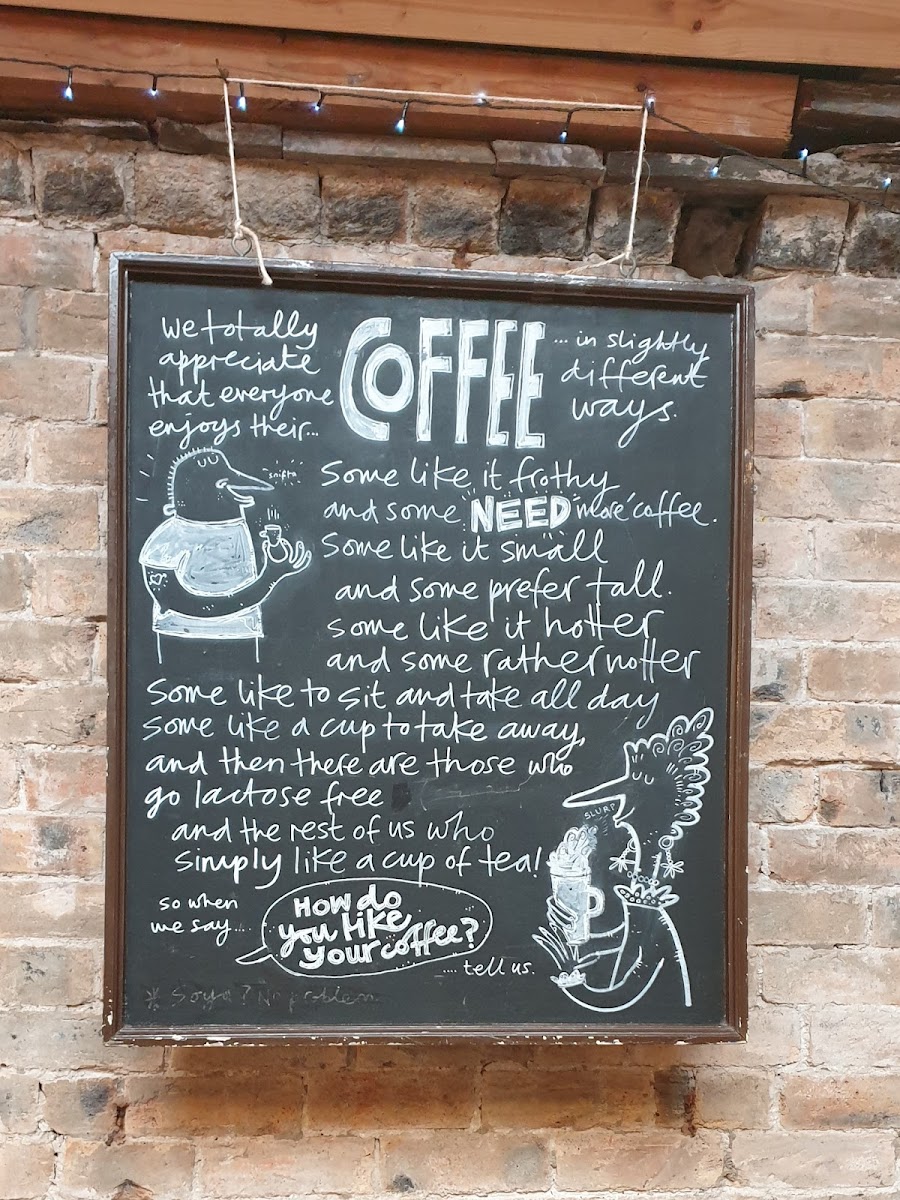 We totally
appreciate
that everyone
enjoys their...
COFFEE
... in slightly
different
ways.
sniff
Some like it frothy
and some NEED more coffee.
Some like it small
and some prefer tall.
some like it hotter
and some rather notter
Some like to sit and take all day
some like a cup to take away,
and then there are those who
go lactose free
and the rest of us who
simply like a cup of tea!
SLURP
so when
we say...
How do
you like
your coffee?
.... tell us.
* Soya? No problem